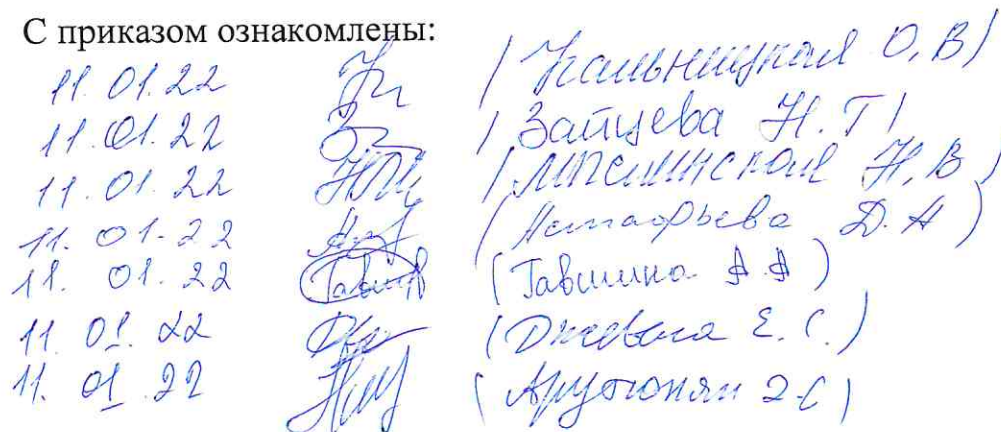 С приказом ознакомлены:
11.01.22 (Кальницкая О,В)
11.01.22 (Зайцева Н.Т)
11.01.22 Н,В)
11.01.22 (Астафьева Д.А)
11.01.22 (Гавшина А.А)
11.01.22 Е.С.)
11.01.22 (Арутюнян Э.С)